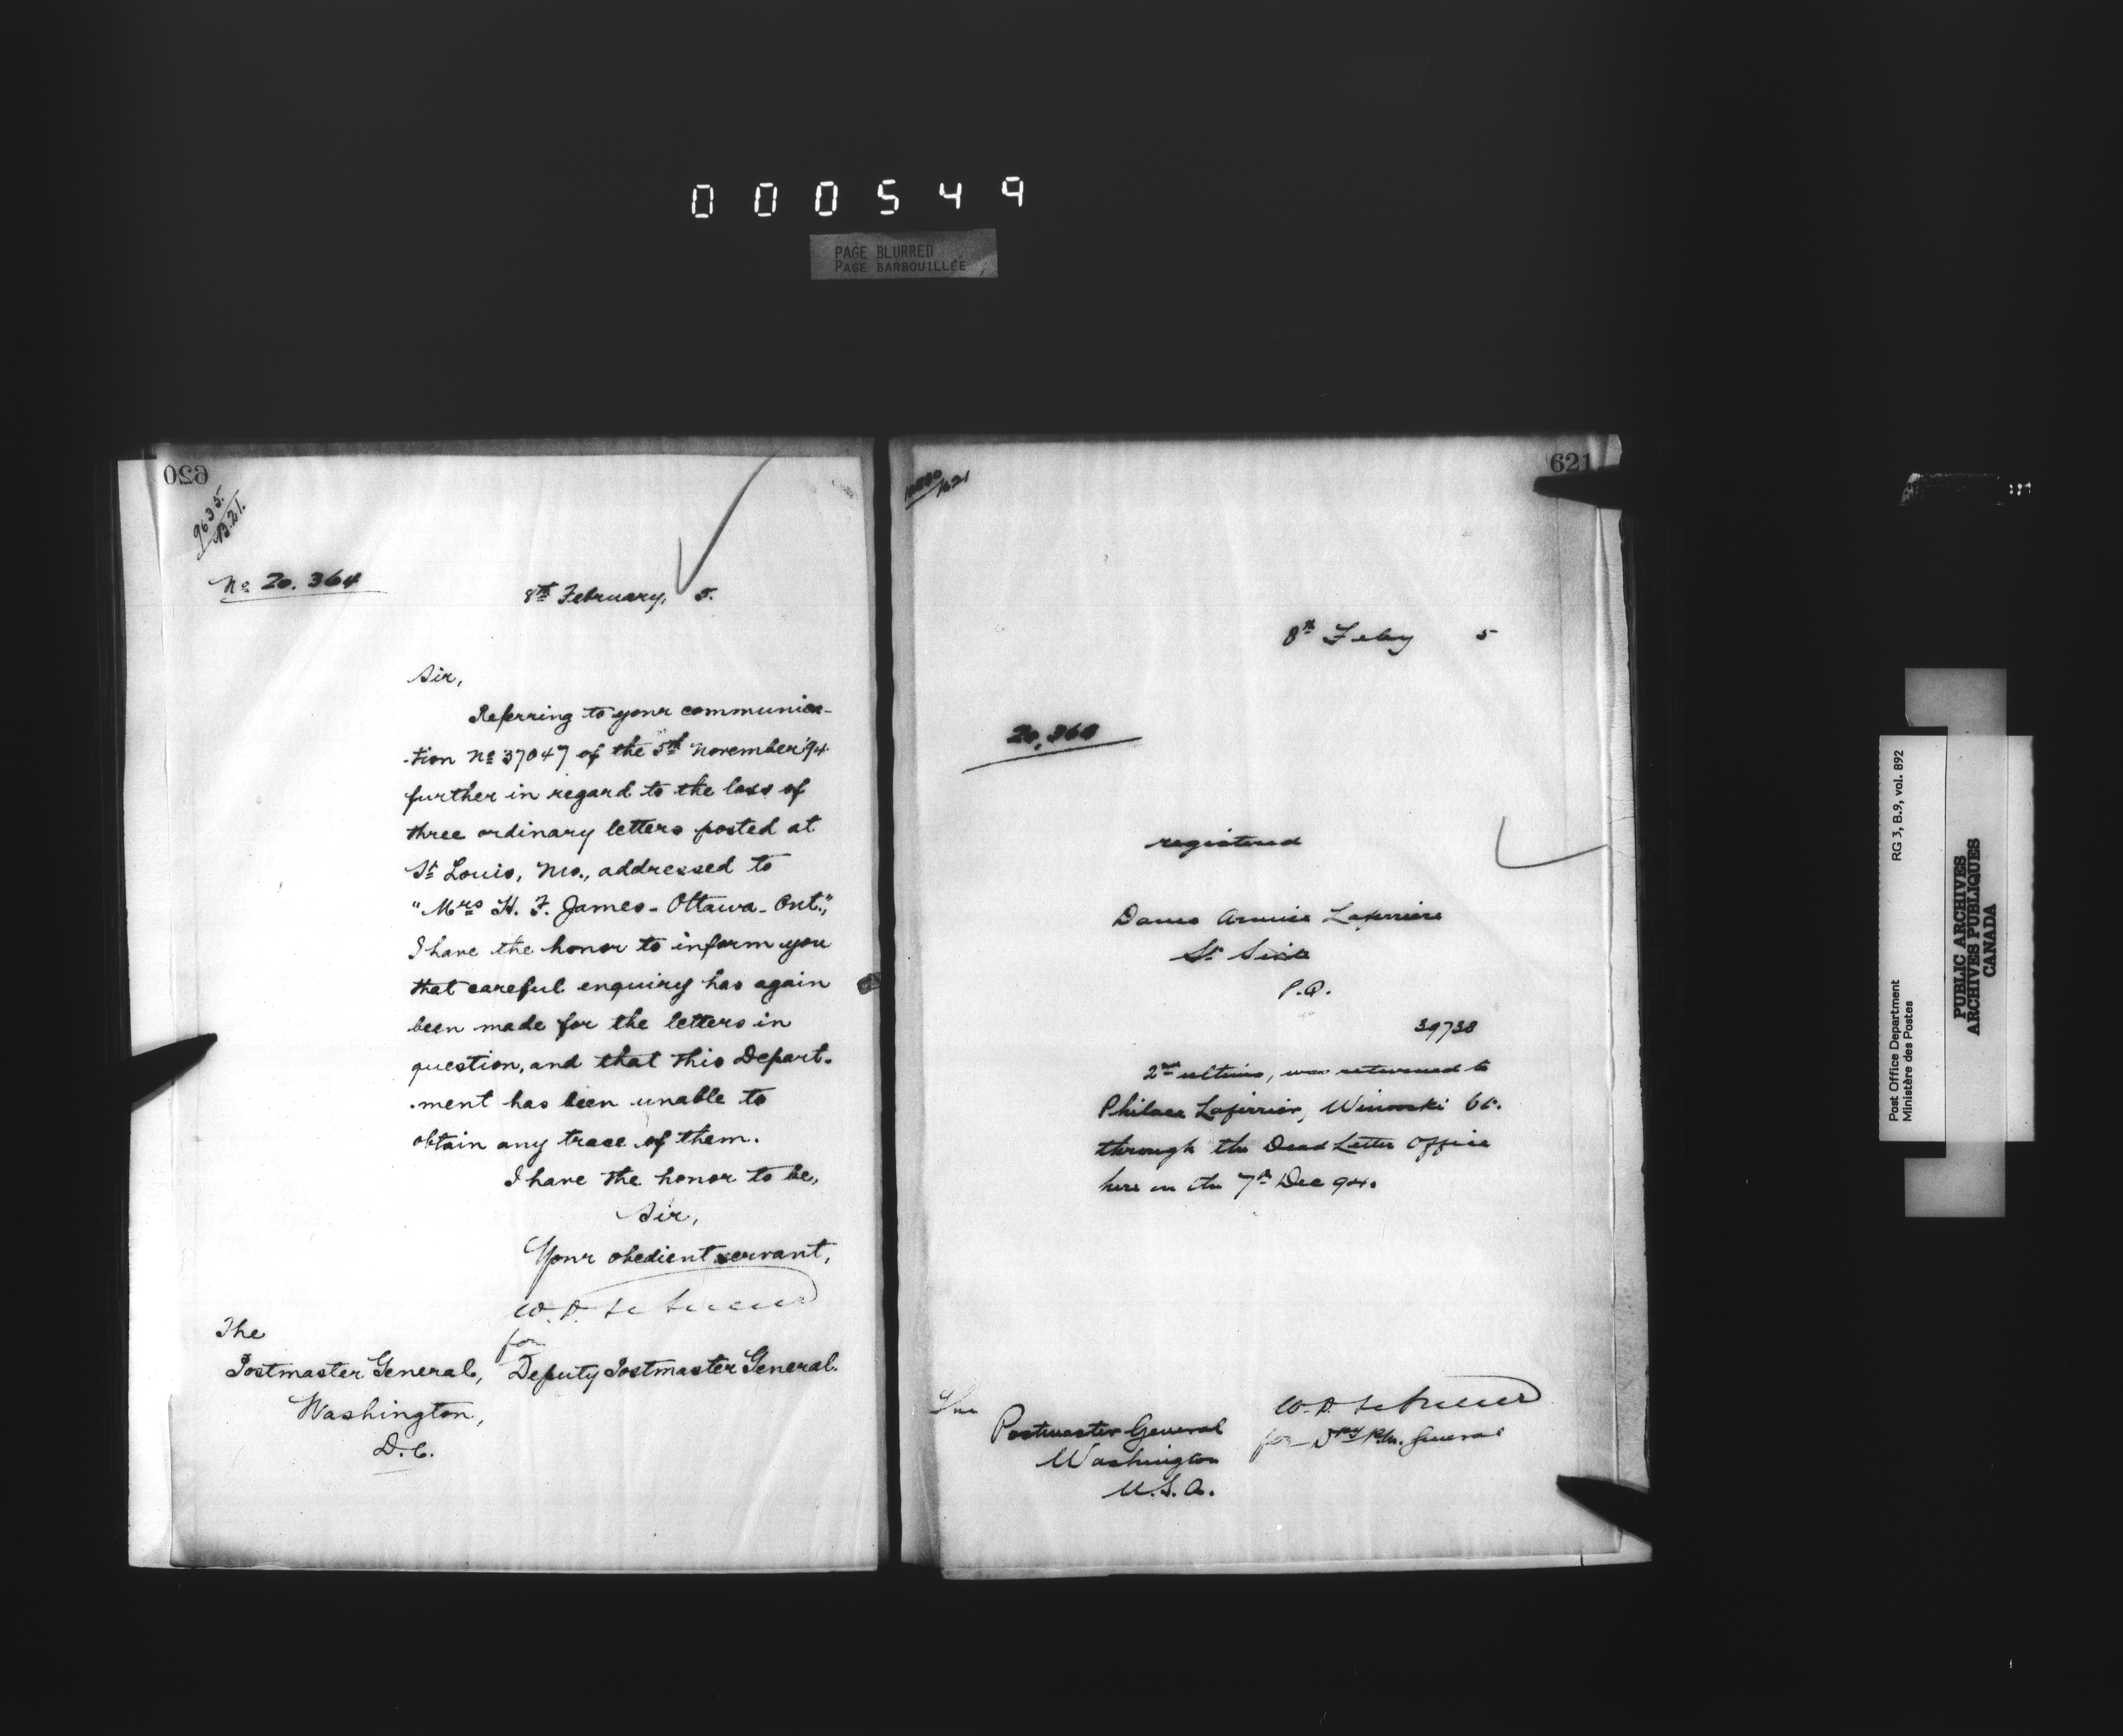 000549
PAGE BLURRED
PAGE BARBOUILLÉE
620
9635.
B.21.
No 20.364
8th February, 5.
Sir,
Referring to your communica-
-tion No 37047 of the 5th November '94
further in regard to the loss of
three ordinary letters posted at
St Louis, Mo., addressed to
"Mrs H. F. James - Ottawa - Ont.",
I have the honor to inform you
that careful enquiry has again
been made for the letters in
question, and that this Depart-
-ment has been unable to
obtain any trace of them.
I have the honor to be,
Sir,
Your obedient servant,
W. D.
for
Deputy Postmaster General.
The
Postmaster General,
Washington,
D.C.
621
8th Feby 5
registered
Dame Laferriere
St Sixte
P.Q.
39738
2nd ultimo, was returned to
Laferrier, Winooski Vt.
through the Dead Letter Office
here on the 7th Dec 94.
W. D.
for Dpy P.M. General
The
Postmaster General
Washington
U.S.A.
RG 3, B.9, vol. 892
Post Office Department
Ministère des Postes
PUBLIC ARCHIVES
ARCHIVES PUBLIQUES
CANADA